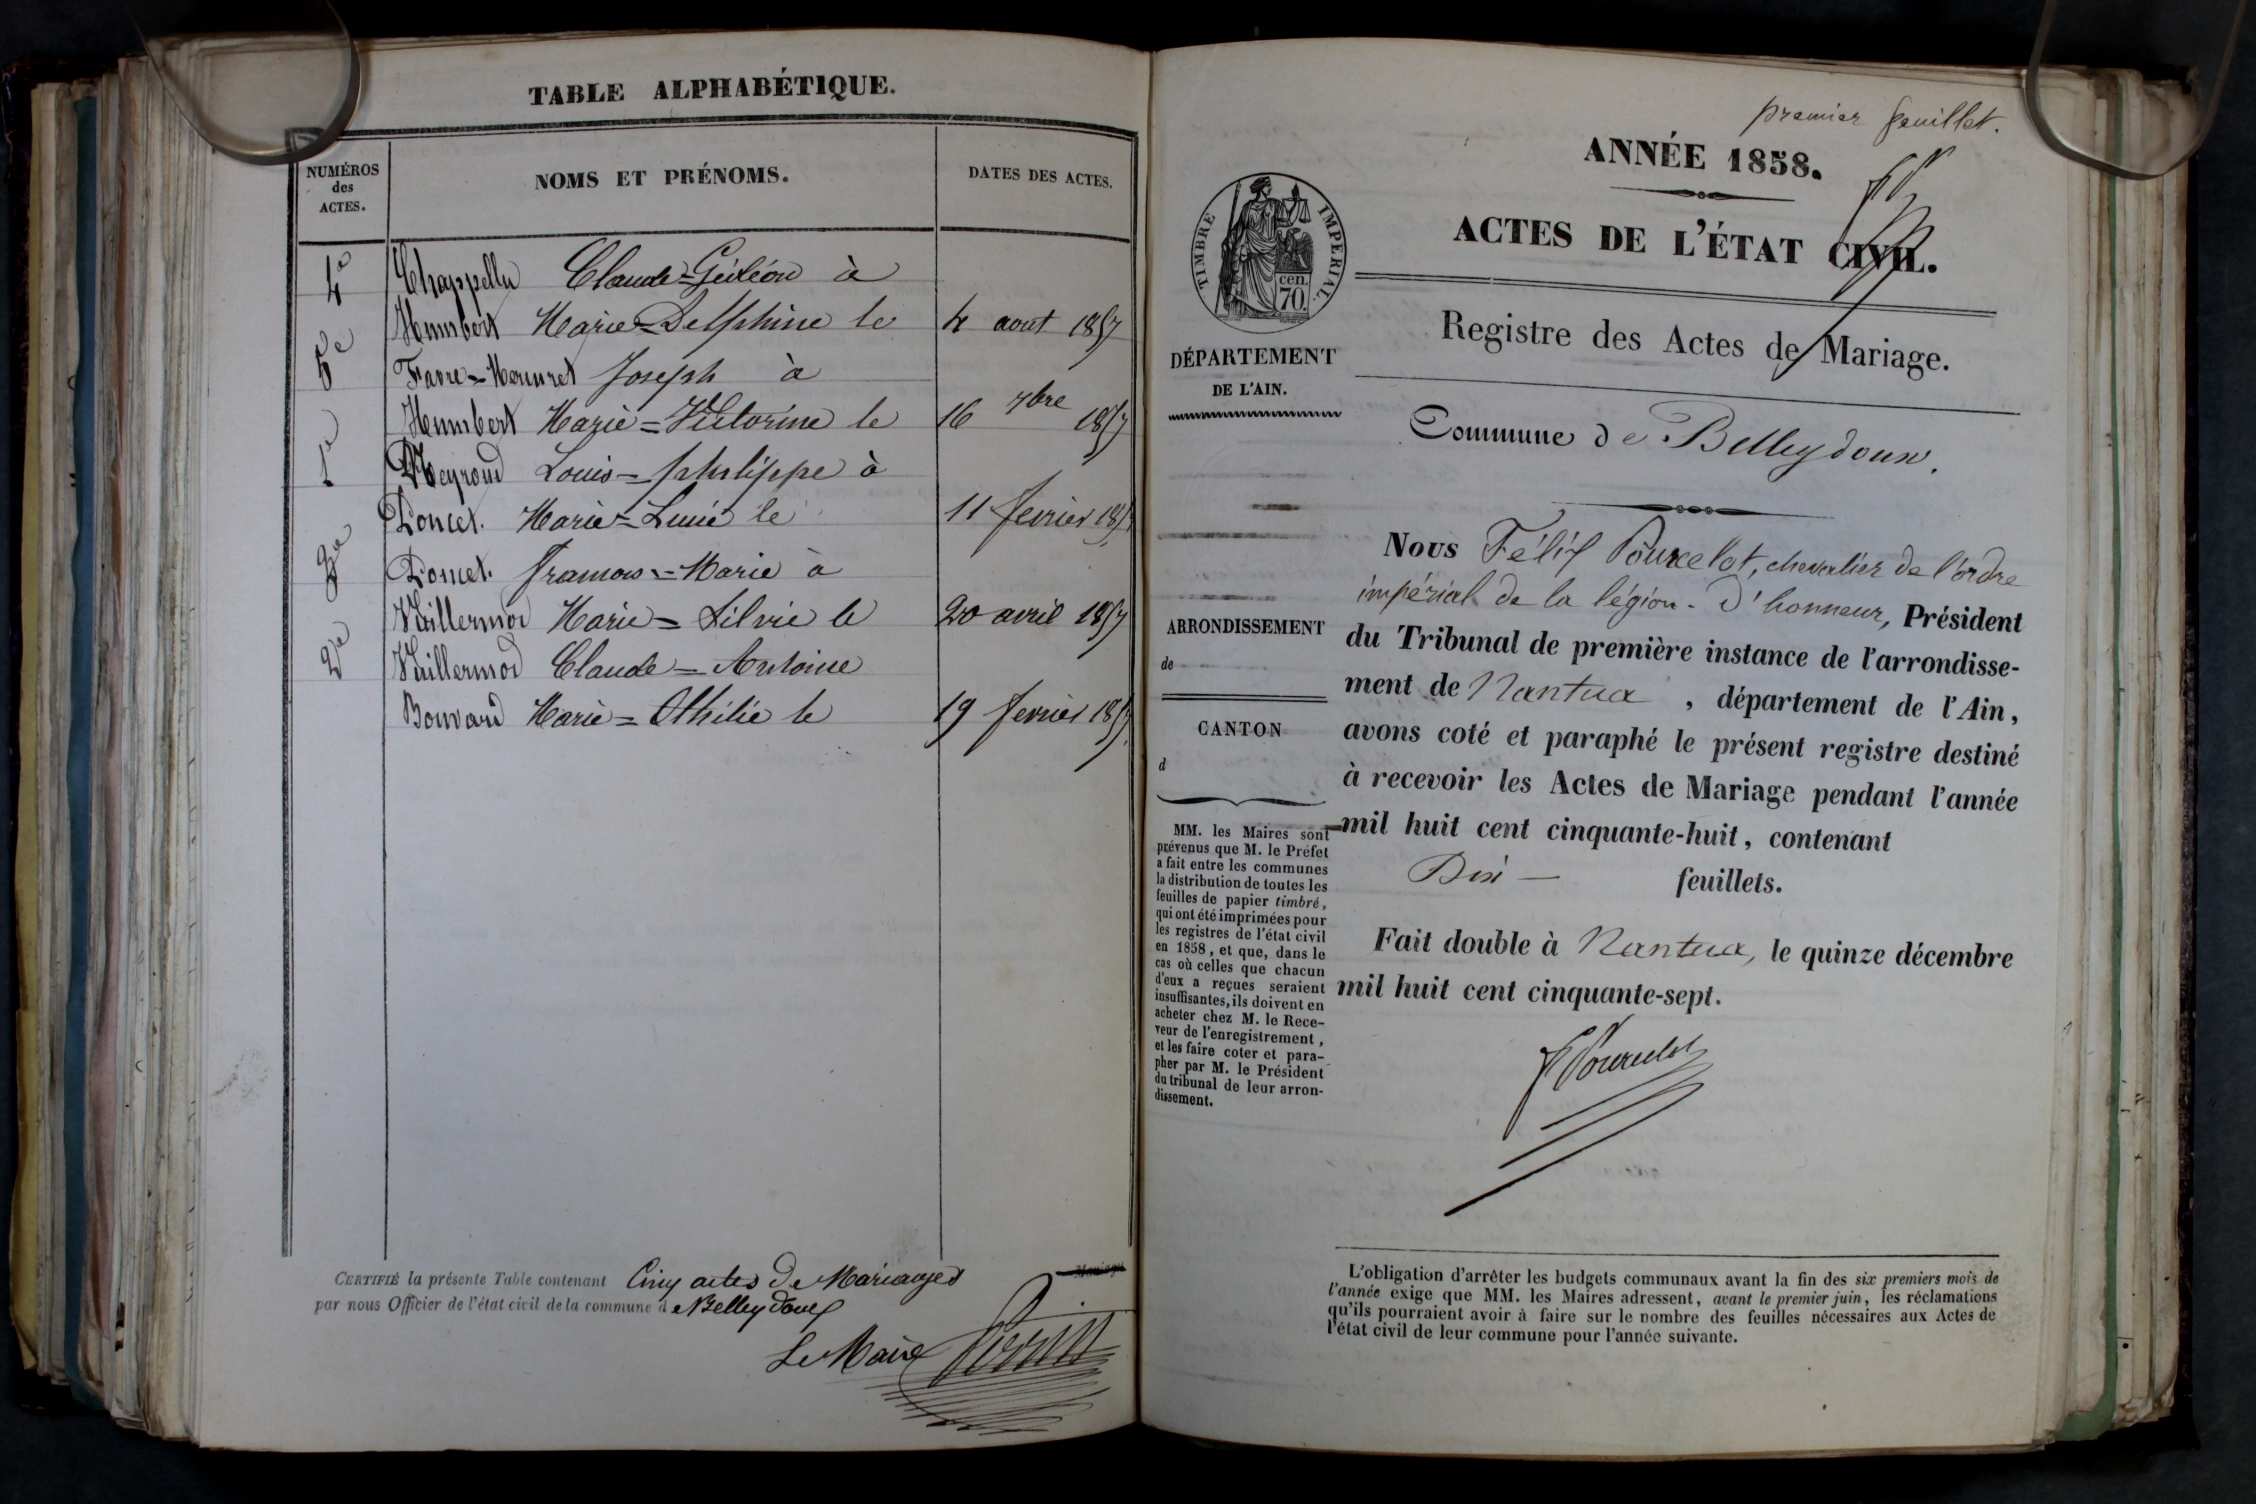 TABLE ALPHABÉTIQUE.
NUMÉROS
des
ACTES.
NOMS ET PRÉNOMS.
DATES DES ACTES.
4e Chappellu Claude=Gédéon à
Humbert Marie=Delphine le 4 aout 1857
5e Favre=Mermet Joseph à
Humbert Marie=Victorine le 16 7bre 1857
1e Meyrond Louis=philippe à
Poncet. Marie= le 11 fevrier 1857
3e Poncet. francois=Marie à
Vuillermod Marie=Silvie le 20 avril 1857
2e Vuillermod Claude=Antoine
Bouvard Marie=Othilie le 19 fevrier 1857
CERTIFIÉ la présente Table contenant Cinq actes de Mariages
par nous Officier de l'état civil de la commune d eBelleydoux
Le Maire Perrin
premier feuillet.
ANNÉE 1858.
ACTES DE L'ÉTAT CIVIL.
TIMBRE IMPÉRIAL.
cen.
70.
Registre des Actes de Mariage.
DÉPARTEMENT
DE L'AIN.
Commune de Belleydoux.
Nous Félix Pourcelot, chevalier de l'ordre
impérial de la légion-d'honneur, Président
du Tribunal de première instance de l'arrondisse-
ment de Nantua, département de l'Ain,
avons coté et paraphé le présent registre destiné
à recevoir les Actes de Mariage pendant l'année
mil huit cent cinquante-huit, contenant
Dix — feuillets.
Fait double à Nantua, le quinze décembre
mil huit cent cinquante-sept.
F Pourcelot
ARRONDISSEMENT
de
CANTON
d
MM. les Maires sont
prévenus que M. le Préfet
a fait entre les communes
la distribution de toutes les
feuilles de papier timbré,
qui ont été imprimées pour
les registres de l'état civil
en 1858, et que, dans le
cas où celles que chacun
d'eux a reçues seraient
insuffisantes, ils doivent en
acheter chez M. le Rece-
veur de l'enregistrement,
et les faire coter et para-
pher par M. le Président
du tribunal de leur arron-
dissement.
L'obligation d'arrêter les budgets communaux avant la fin des six premiers mois de
l'année exige que MM. les Maires adressent, avant le premier juin, les réclamations
qu'ils pourraient avoir à faire sur le nombre des feuilles nécessaires aux Actes de
l'état civil de leur commune pour l'année suivante.